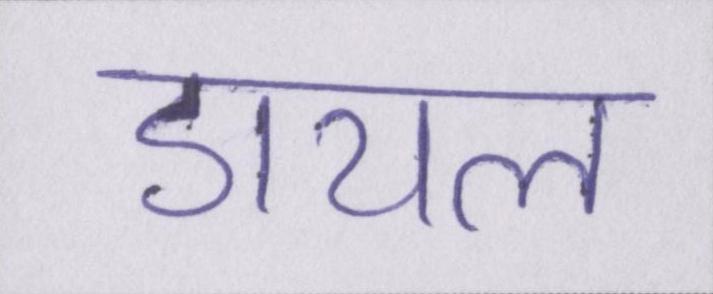 डायल